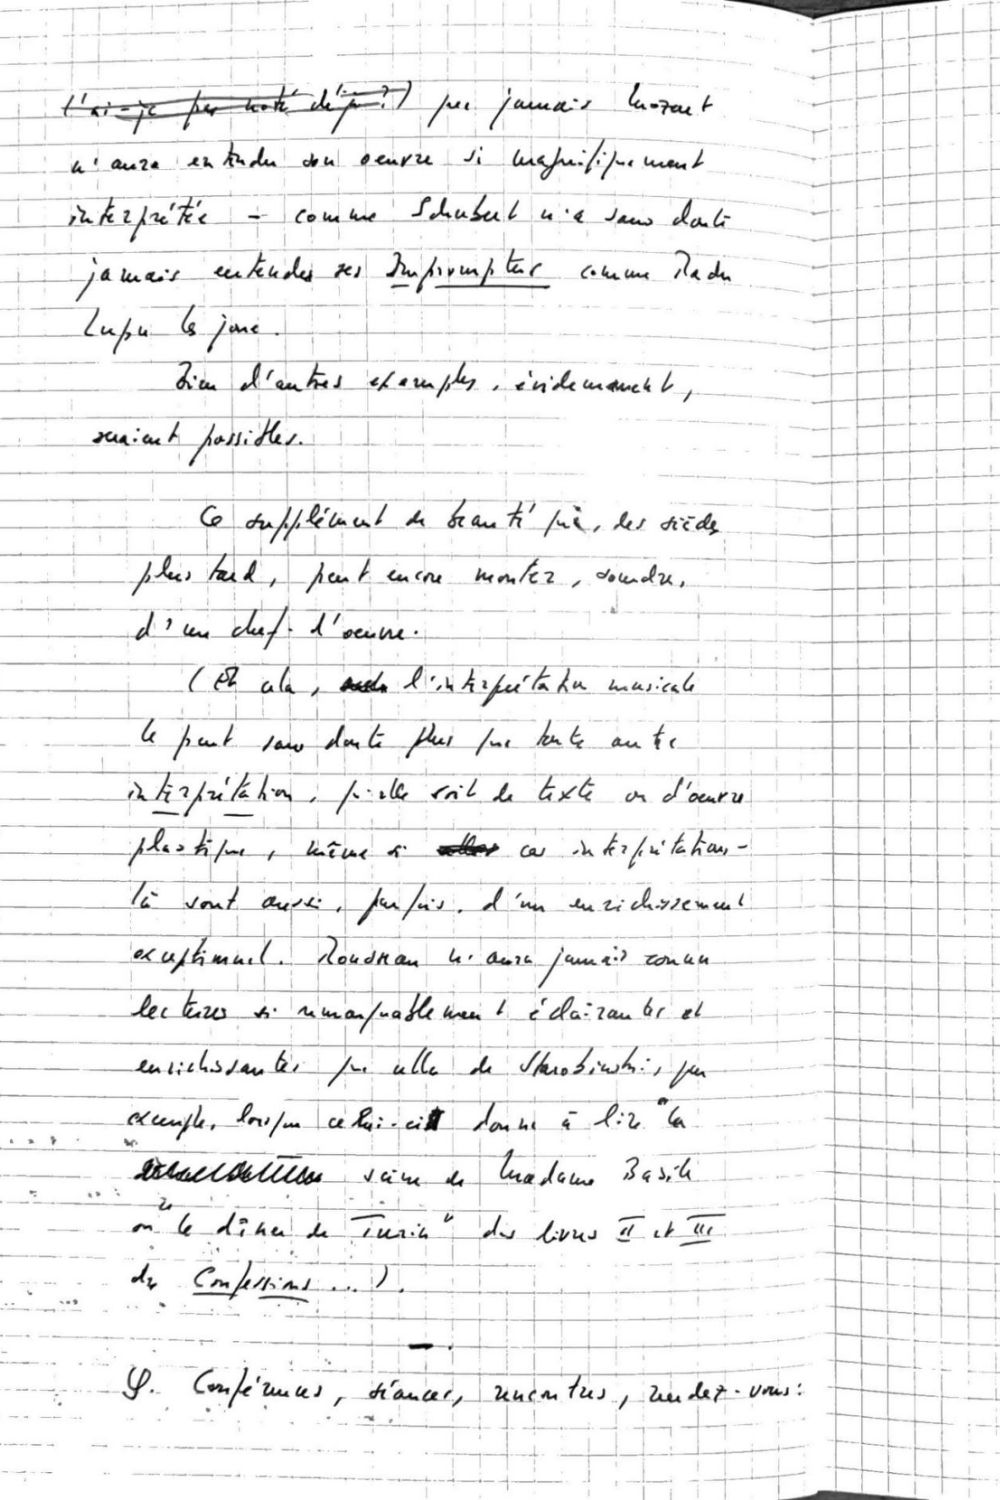 (l'ai-je pas noté déjà ?) que jamais Mozart
n'aura entendu son oeuvre si magnifiquement
interprétée – comme Schubert n'a sans doute
jamais entendu ses Impromptus comme Radu
Lupu les joue.
Bien d'autres exemples, évidemment,
seraient possibles.
Ce supplément de beauté qui, des siècles
plus tard, peut encore monter, sourdre,
d'un chef-d'oeuvre.
(Et cela, l'interprétation musicale
le peut sans doute plus que toute autre
interprétation, qu'elle soit de texte ou d'oeuvre
plastique, même si ces interprétations-
là sont aussi, parfois, d'un enrichissement
exceptionnel. Rousseau n'aura jamais connu
lectures si remarquablement éclairantes et
enrichissantes que celle de Starobinski, par
exemple, lorsque celui-ci donne à lire "la
scène de Madame Basile
ou "le dîner de Turin" des livres II et III
des Confessions...).
–.
φ. Conférences, séances, rencontres, rendez-vous: